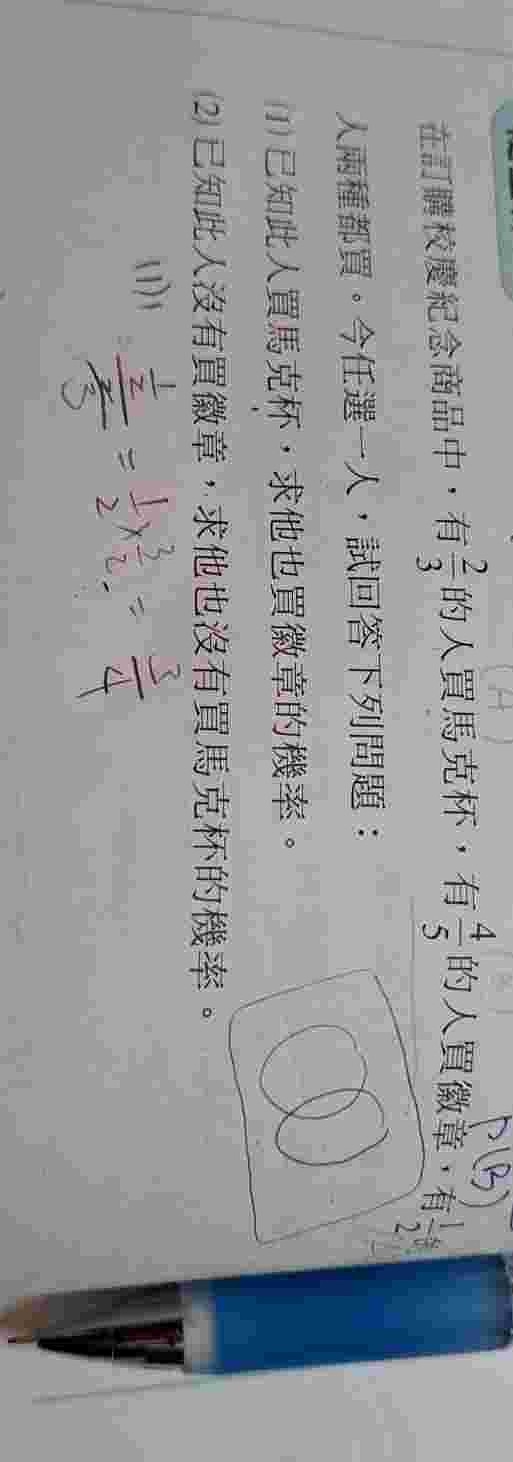 在訂購校慶紀念商品中，有2/3的人買馬克杯，有4/5的人買徽章，有1/2的
人兩種都買。今任選一人，試回答下列問題：
(1)已知此人買馬克杯，求他也買徽章的機率。
(2)已知此人沒有買徽章，求他也沒有買馬克杯的機率。
(A)
P(B)
(1)
= 1/2 × 3/2 = 3/4